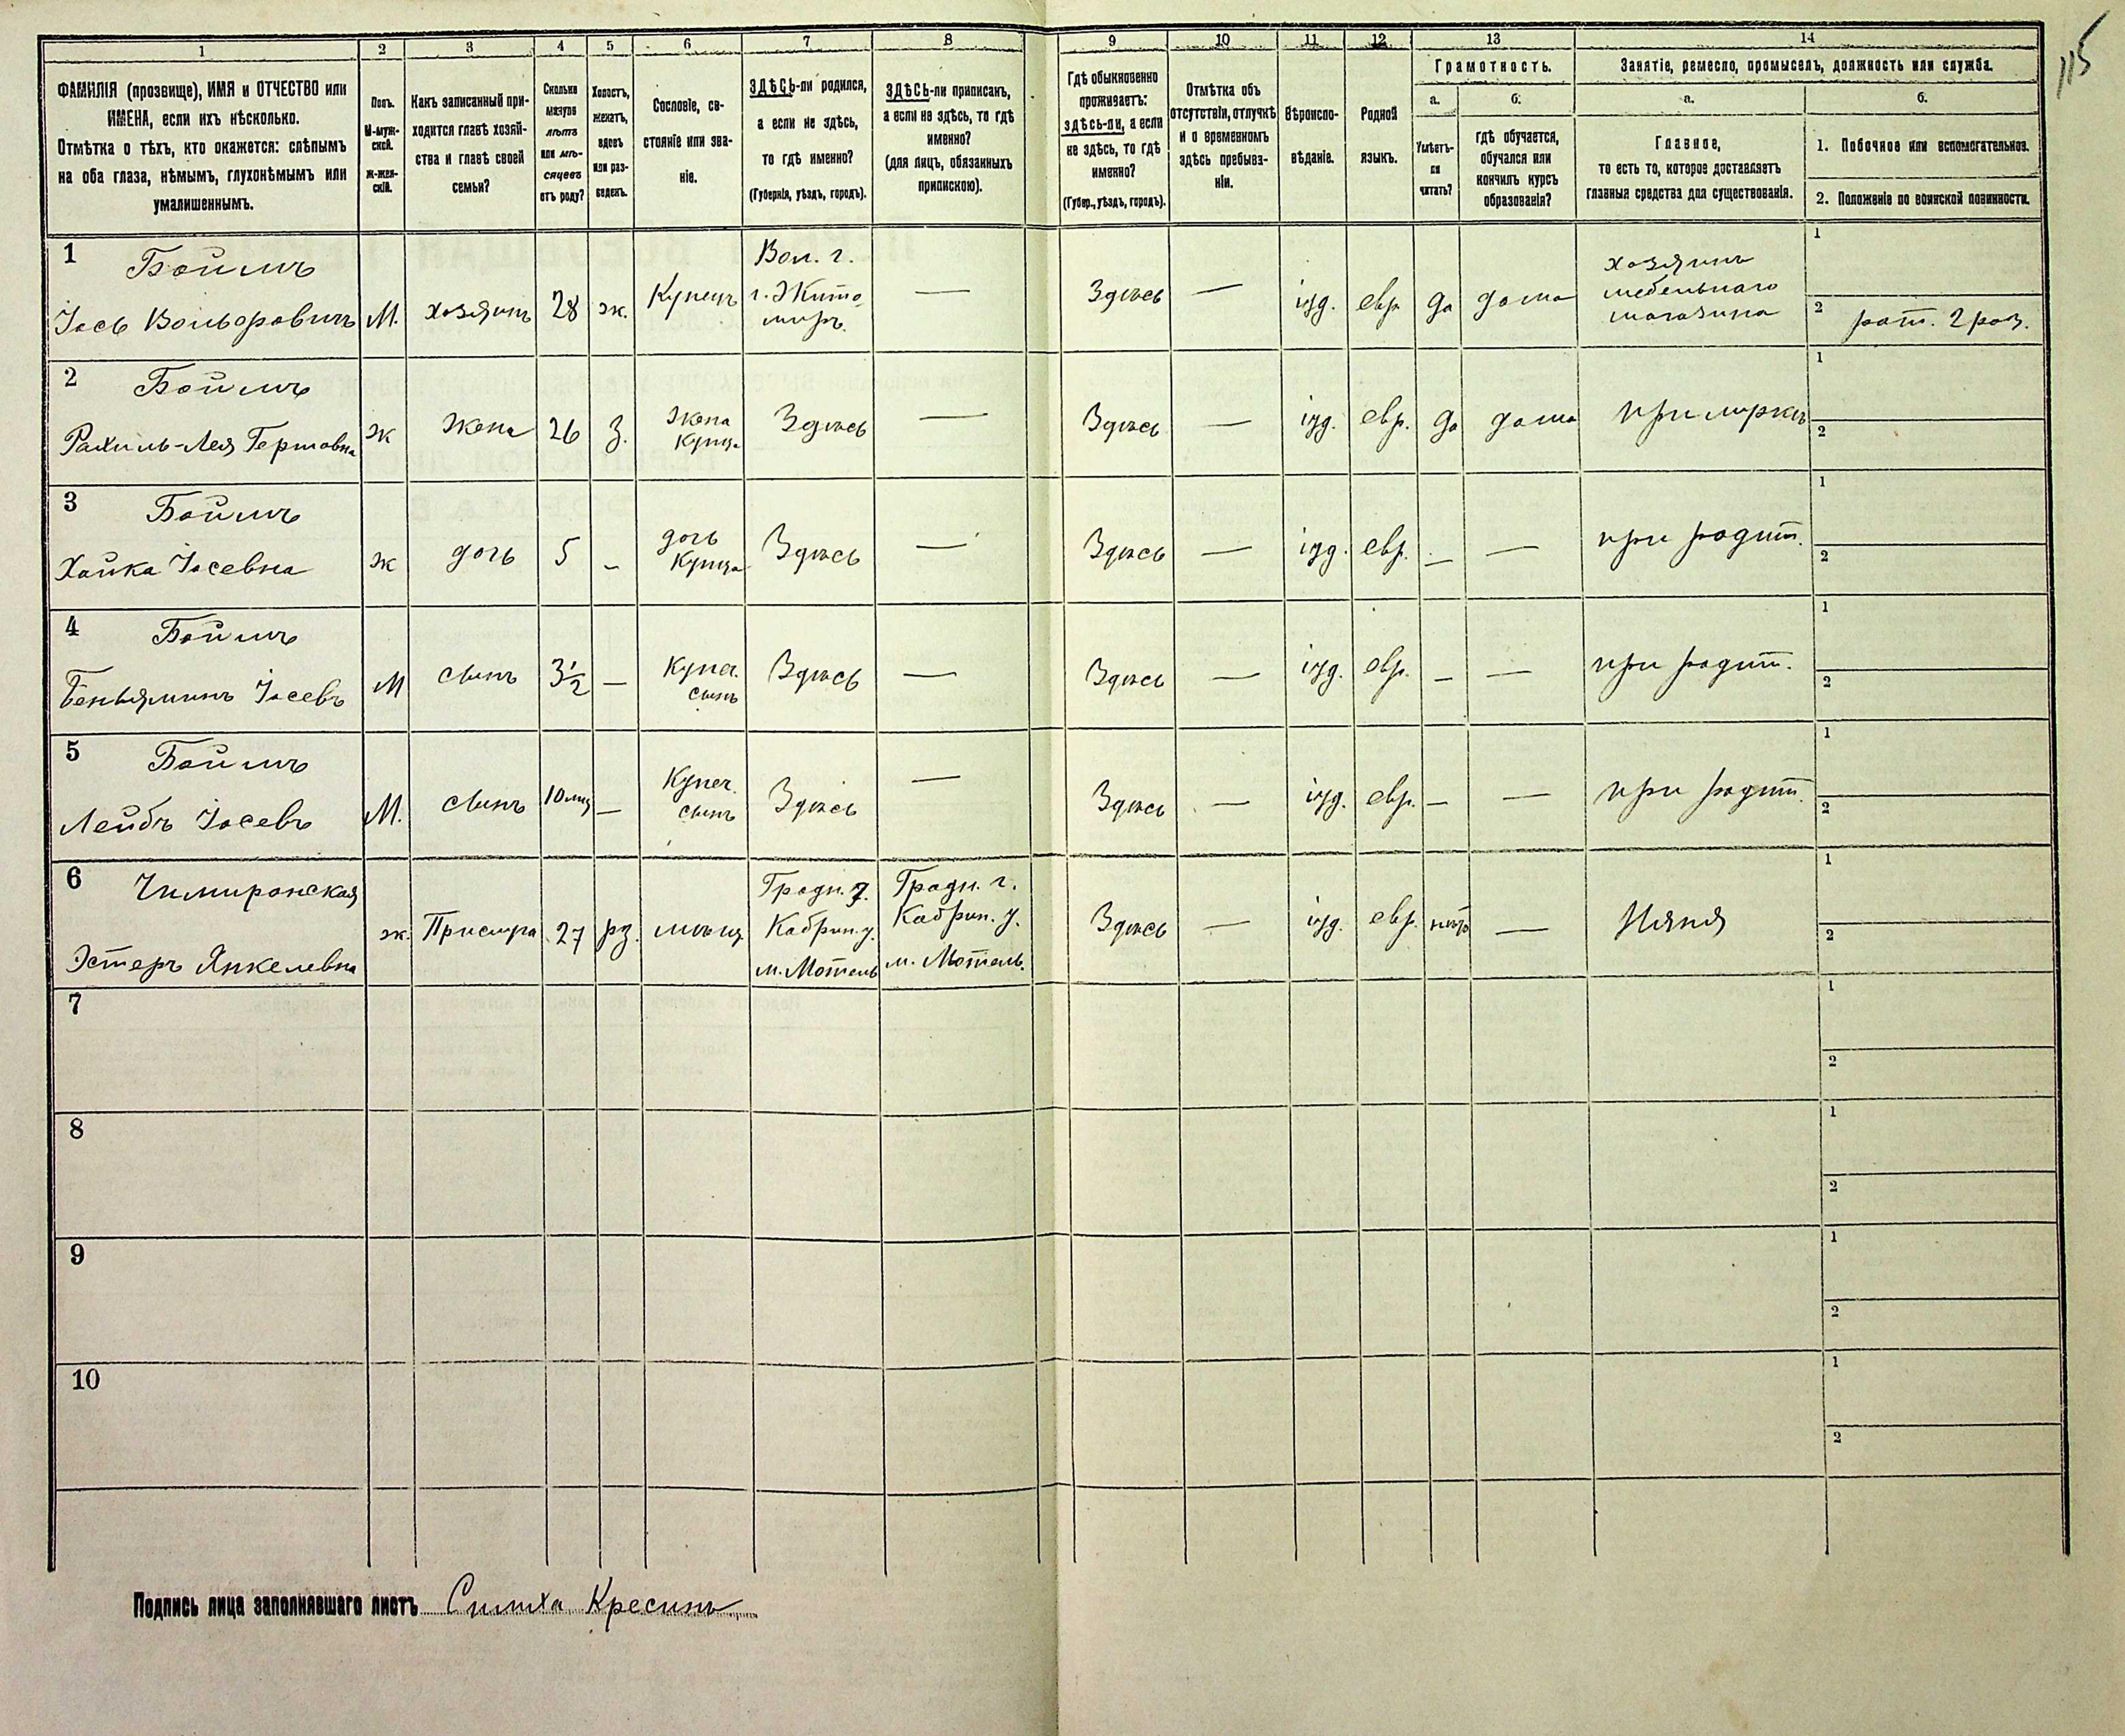 115
1 2 3 4 5 6 7 8 9 10 11 12 13 14
ФАМИЛІЯ (прозвище), ИМЯ и ОТЧЕСТВО или
ИМЕНА, если ихъ нѣсколько.
Отмѣтка о тѣхъ, кто окажется: слѣпымъ
на оба глаза, нѣмымъ, глухонѣмымъ или
умалишеннымъ.
Полъ.
М-муж-
ской.
Ж-жен-
скій.
Какъ записанный при-
ходится главѣ хозяй-
ства и главѣ своей
семьи?
Сколько
минуло
лѣтъ
или мѣ-
сяцевъ
отъ роду?
Холостъ,
женатъ,
вдовъ
или раз-
веденъ.
Сословіе, со-
стояніе или зва-
ніе.
ЗДѢСЬ-ли родился,
а если не здѣсь,
то гдѣ именно?
(Губернія, уѣздъ, городъ).
ЗДѢСЬ-ли приписанъ,
а если не здѣсь, то гдѣ
именно?
(для лицъ, обязанныхъ
припискою).
Гдѣ обыкновенно
проживаетъ:
здѣсь-ли, а если
не здѣсь, то гдѣ
именно?
(Губер., уѣздъ, городъ).
Отмѣтка объ
отсутствіи, отлучкѣ
и о временномъ
здѣсь пребыва-
ніи.
Вѣроиспо-
вѣданіе.
Родной
языкъ.
Грамотность.
а.
Умѣетъ-
ли
читать?
б.
гдѣ обучается,
обучался или
кончилъ курсъ
образованія?
Занятіе, ремесло, промыселъ, должность или служба.
а.
Главное,
то есть то, которое доставляетъ
главныя средства для существованія.
б.
1. Побочное или вспомогательное.
2. Положеніе по воинской повинности.
1 Боймъ
Іось Вольфовичъ
М.
хозяинъ
28
ж.
Купецъ
Вол. г.
г. Жито
миръ.
—
Здѣсь
—
іуд.
евр
да
дома
хозяинъ
мебельнаго
магазина
1
2 рат. 2 раз.
2 Боймъ
Рахиль-Лея Гершовна
ж
жена
26
з.
жена
купца
Здѣсь
—
Здѣсь
—
іуд.
евр.
да
дома
при мужѣ
1
2
3 Боймъ
Хайка Іосевна
ж
дочь
5
–
дочь
купца
Здѣсь
—
Здѣсь
—
іуд.
евр.
—
—
при родит.
1
2
4 Боймъ
Беньяминъ Іосевъ
М
сынъ
3½
—
купеч.
сынъ
Здѣсь
—
Здѣсь
—
іуд.
евр.
–
—
при родит.
1
2
5 Боймъ
Лейбъ Іосевъ
М.
сынъ
10 мц
—
Купеч.
сынъ
Здѣсь
—
Здѣсь
—
іуд.
евр.
—
—
при родит.
1
2
6
Эстеръ Янкелевна
ж.
Прислуга
27
рз.
мѣщ
Гродн. г.
Кобрин. у.
м. Мотель
Гродн. г.
Кобрин. у.
м. Мотель.
Здѣсь
—
іуд.
евр.
нѣтъ
—
Няня
1
2
7
1
2
8
1
2
9
1
2
10
1
2
Подпись лица заполнявшаго листъ Симха Кресинъ